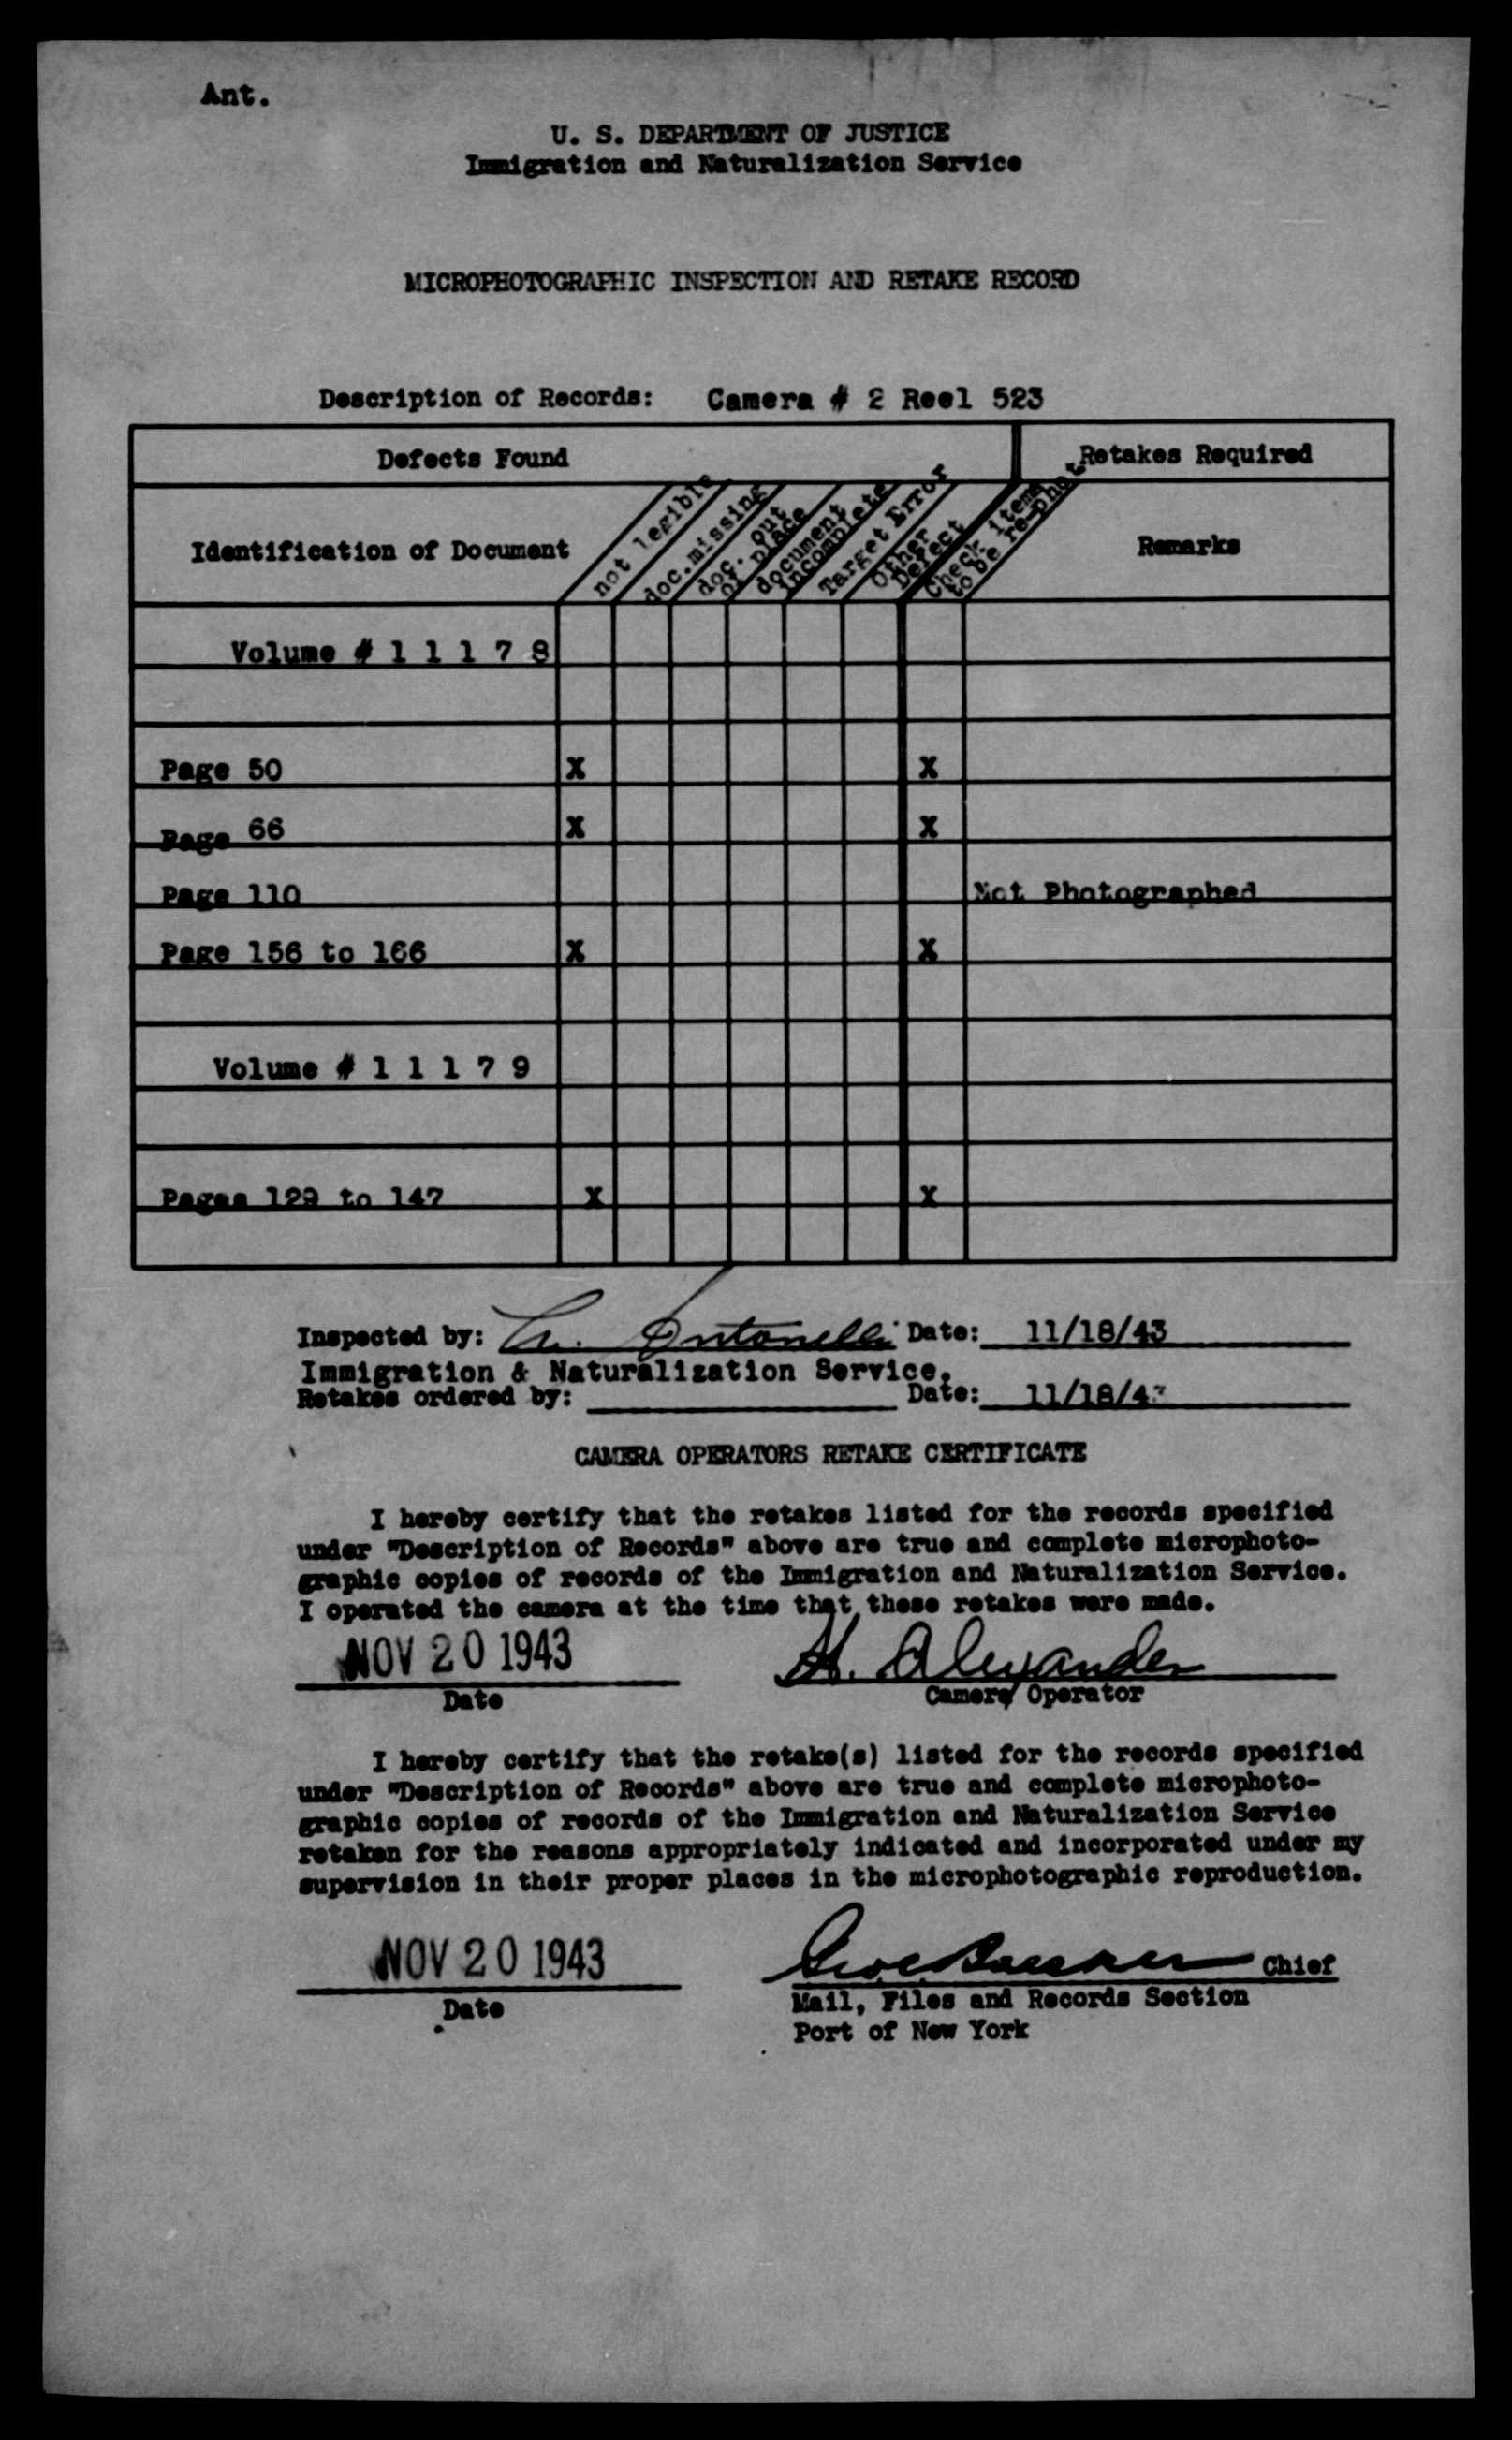 Ant.
U. S. DEPARTMENT OF JUSTICE
Immigration and Naturalization Service
MICROPHOTOGRAPHIC INSPECTION AND RETAKE RECORD
Description of Records: Camera # 2 Reel 523
Defects Found
Retakes Required
Identification of Document
not legible
doc.missing
doc. out of place
document incomplete
Target Error
Other Defect
Check items to be re-phot
Remarks
Volume # 1 1 1 7 8
Page 50 X X
Page 66 X X
Page 110 Not Photographed
Page 156 to 166 X X
Volume # 1 1 1 7 9
Pages 129 to 147 X X
Inspected by: Antonelli Date: 11/18/43
Immigration & Naturalization Service.
Retakes ordered by: Date: 11/18/43
CAMERA OPERATORS RETAKE CERTIFICATE
I hereby certify that the retakes listed for the records specified
under "Description of Records" above are true and complete microphoto-
graphic copies of records of the Immigration and Naturalization Service.
I operated the camera at the time that these retakes were made.
NOV 20 1943 H. Alexander
Date Camera Operator
I hereby certify that the retake(s) listed for the records specified
under "Description of Records" above are true and complete microphoto-
graphic copies of records of the Immigration and Naturalization Service
retaken for the reasons appropriately indicated and incorporated under my
supervision in their proper places in the microphotographic reproduction.
NOV 20 1943 Chief
Date Mail, Files and Records Section
Port of New York